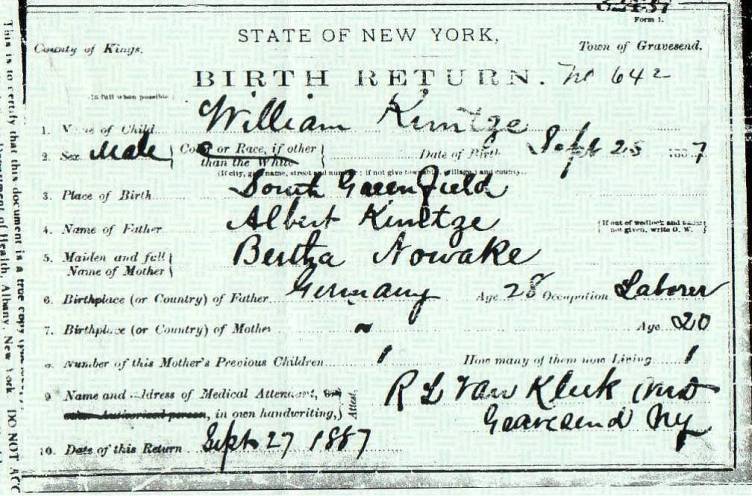 Form 1.
STATE OF NEW YORK,
County of Kings. Town of Gravesend.
BIRTH RETURN. No 642
In full when possible
1. Name of Child William Kintze
2. Sex Male Color or Race, if other than the White Date of Birth Sept 25 1887
(If city, give name, street and number; if not give township, village and county.
3. Place of Birth South Greenfield
4. Name of Father Albert Kintze (If out of wedlock and name not given, write O. W.)
5. Maiden and full Name of Mother Bertha Nowake
6. Birthplace (or Country) of Father Germany Age 28 Occupation Laborer
7. Birthplace (or Country) of Mother " Age 20
8. Number of this Mother's Previous Children 1 How many of them now Living 1
9. Name and Address of Medical Attendant, or other Authorized person, in own handwriting, Attest, R L Van Kleek MD
Gravesend Ny
10. Date of this Return Sept 27 1887
This is to certify that this document is a true copy
Department of Health, Albany, New York DO NOT ACC